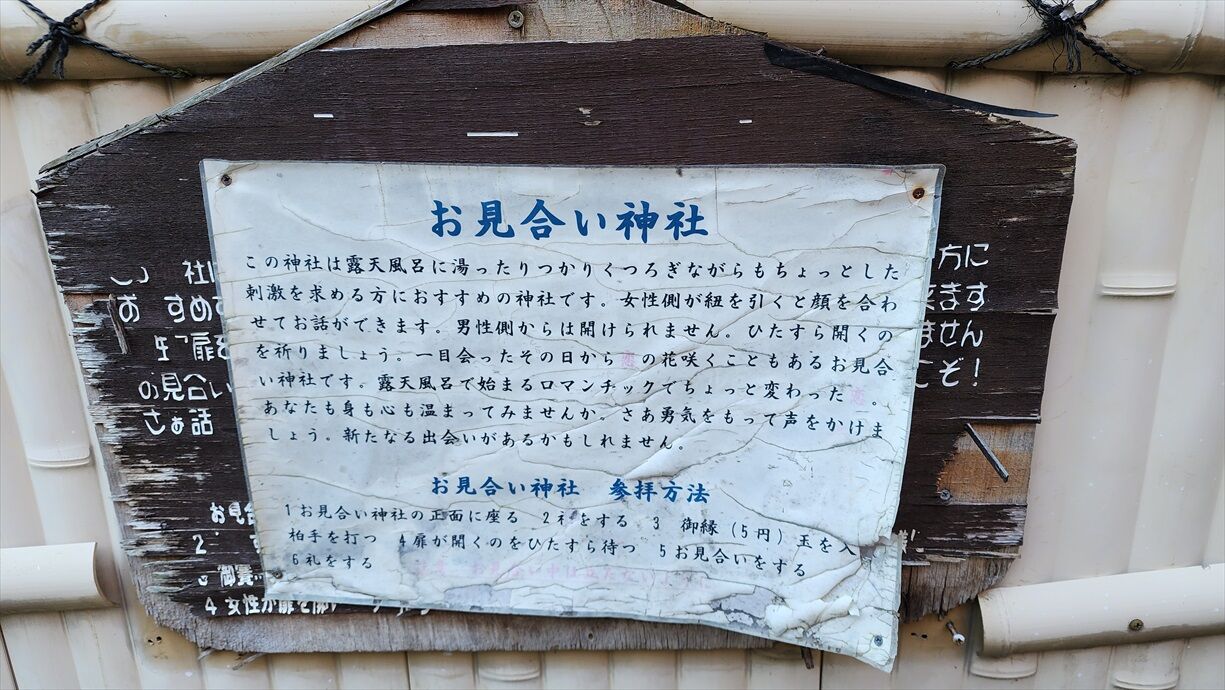 お見合い神社
この神社は露天風呂に湯ったりつかりくつろぎながらもちょっとした
刺激を求める方におすすめの神社です。女性側が紐を引くと顔を合わ
せてお話ができます。男性側からは開けられません。ひたすら開くの
を祈りましょう。一目会ったその日から恋の花咲くこともあるお見合
い神社です。露天風呂で始まるロマンチックでちょっと変わった恋。
あなたも身も心も温まってみませんか。さあ勇気をもって声をかけま
しょう。新たなる出会いがあるかもしれません。
お見合い神社 参拝方法
1お見合い神社の正面に座る 2礼をする 3 御縁(5円)玉を入
柏手を打つ 4扉が開くのをひたすら待つ 5お見合いをする
6礼をする お見合い中は立たない
社
方に
お すめ
ます
扉を
ません
の見合い
こぞ!
さぁ話
お見合
2
御縁
4 女性が扉を開